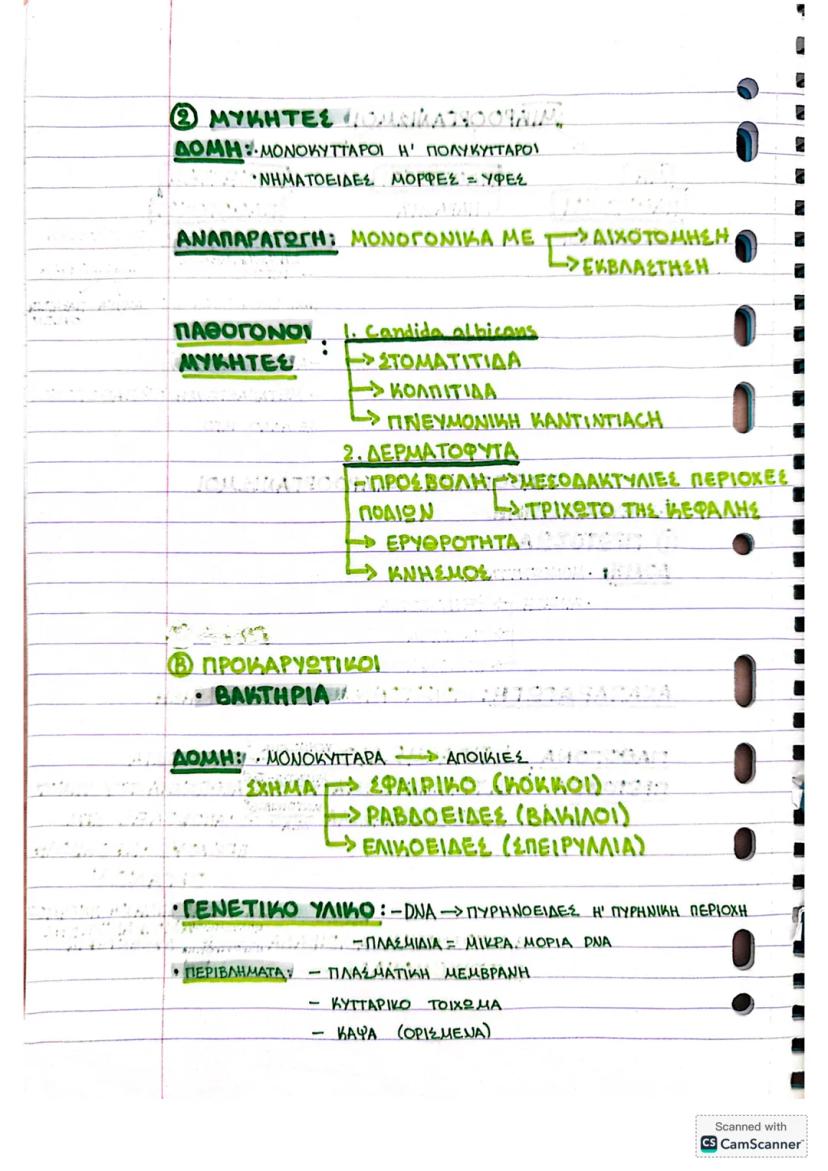 ② ΜΥΚΗΤΕΣ
ΔΟΜΗ: · ΜΟΝΟΚΥΤΤΑΡΟΙ Η' ΠΟΛΥΚΥΤΤΑΡΟΙ
· ΝΗΜΑΤΟΕΙΔΕΣ ΜΟΡΦΕΣ = ΥΦΕΣ
ΑΝΑΠΑΡΑΓΩΓΗ: ΜΟΝΟΓΟΝΙΚΑ ΜΕ → ΔΙΧΟΤΟΜΗΣΗ
→ ΕΚΒΛΑΣΤΗΣΗ
ΠΑΘΟΓΟΝΟΙ ΜΥΚΗΤΕΣ :
1. Candida albicans
→ ΣΤΟΜΑΤΙΤΙΔΑ
→ ΚΟΛΠΙΤΙΔΑ
→ ΠΝΕΥΜΟΝΙΚΗ ΚΑΝΤΙΝΤΙΑΣΗ
2. ΔΕΡΜΑΤΟΦΥΤΑ
- ΠΡΟΣΒΟΛΗ → ΜΕΣΟΔΑΚΤΥΛΙΕΣ ΠΕΡΙΟΧΕΣ
ΠΟΔΙΩΝ → ΤΡΙΧΩΤΟ ΤΗΣ ΚΕΦΑΛΗΣ
→ ΕΡΥΘΡΟΤΗΤΑ
→ ΚΝΗΣΜΟΣ
Β ΠΡΟΚΑΡΥΩΤΙΚΟΙ
· ΒΑΚΤΗΡΙΑ
ΔΟΜΗ: · ΜΟΝΟΚΥΤΤΑΡΑ → ΑΠΟΙΚΙΕΣ
ΣΧΗΜΑ → ΣΦΑΙΡΙΚΟ (ΚΟΚΚΟΙ)
→ ΡΑΒΔΟΕΙΔΕΣ (ΒΑΚΙΛΟΙ)
→ ΕΛΙΚΟΕΙΔΕΣ (ΣΠΕΙΡΥΛΛΙΑ)
· ΓΕΝΕΤΙΚΟ ΥΛΙΚΟ: - DNA → ΠΥΡΗΝΟΕΙΔΕΣ Η' ΠΥΡΗΝΙΚΗ ΠΕΡΙΟΧΗ
- ΠΛΑΣΜΙΔΙΑ = ΜΙΚΡΑ ΜΟΡΙΑ DNA
· ΠΕΡΙΒΛΗΜΑΤΑ: - ΠΛΑΣΜΑΤΙΚΗ ΜΕΜΒΡΑΝΗ
- ΚΥΤΤΑΡΙΚΟ ΤΟΙΧΩΜΑ
- ΚΑΨΑ (ΟΡΙΣΜΕΝΑ)
Scanned with
CS CamScanner